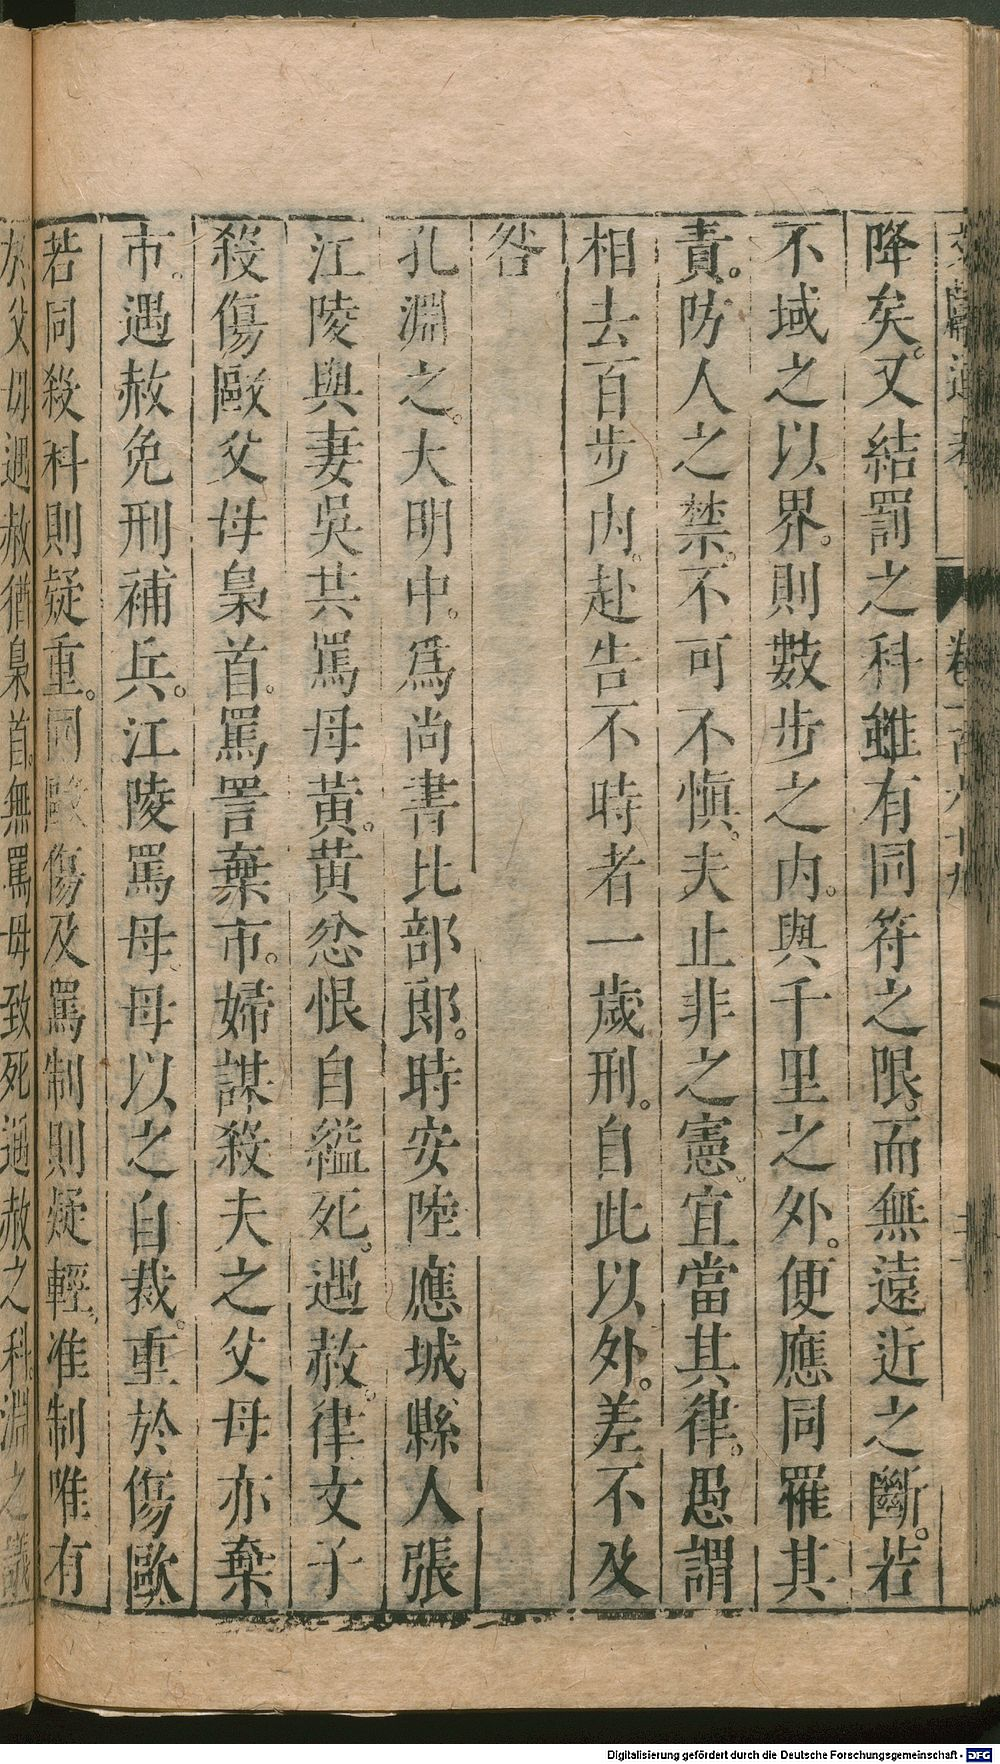 文獻通考 卷一百六十九
降矣。又結罰之科雖有同符之限。而無遠近之斷。若
不域之以界。則數步之內。與千里之外。便應同罹其
責。防人之禁。不可不愼。夫止非之憲。宜當其律。愚謂
相去百步內。赴告不時者一歲刑。自此以外。差不及
咎
孔淵之。大明中。爲尚書比部郎。時安陸應城縣人張
江陵與妻吳共罵母黃。黃忿恨自縊死。遇赦。律文子
殺傷毆父母梟首。罵詈棄市。婦謀殺夫之父母亦棄
市。遇赦免刑補兵。江陵罵母。母以之自裁。重於傷毆
若同殺科則疑重。同毆傷及罵制則疑輕。准制唯有
於父母遇赦猶梟首。無罵母致死遇赦之科。淵之議
Digitalisierung gefördert durch die Deutsche Forschungsgemeinschaft - DFG